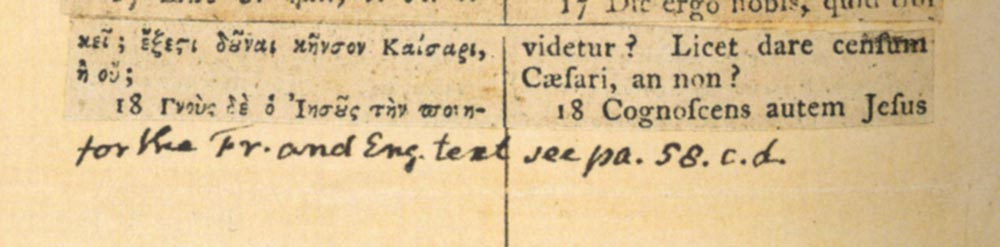 κεῖ; ἔξεϛι δȣ͂ναι κῆνσον Καίσαρι,
ἢ οὔ;
18 Γνοὺς δὲ ὁ Ἰησȣ͂ς τὴν ϖονη-
17 Dic ergo nobis, quid tibi
videtur? Licet dare cenſum
Cæſari, an non?
18 Cognoſcens autem Jeſus
for the Fr. and Eng. text see pa. 58. c.d.